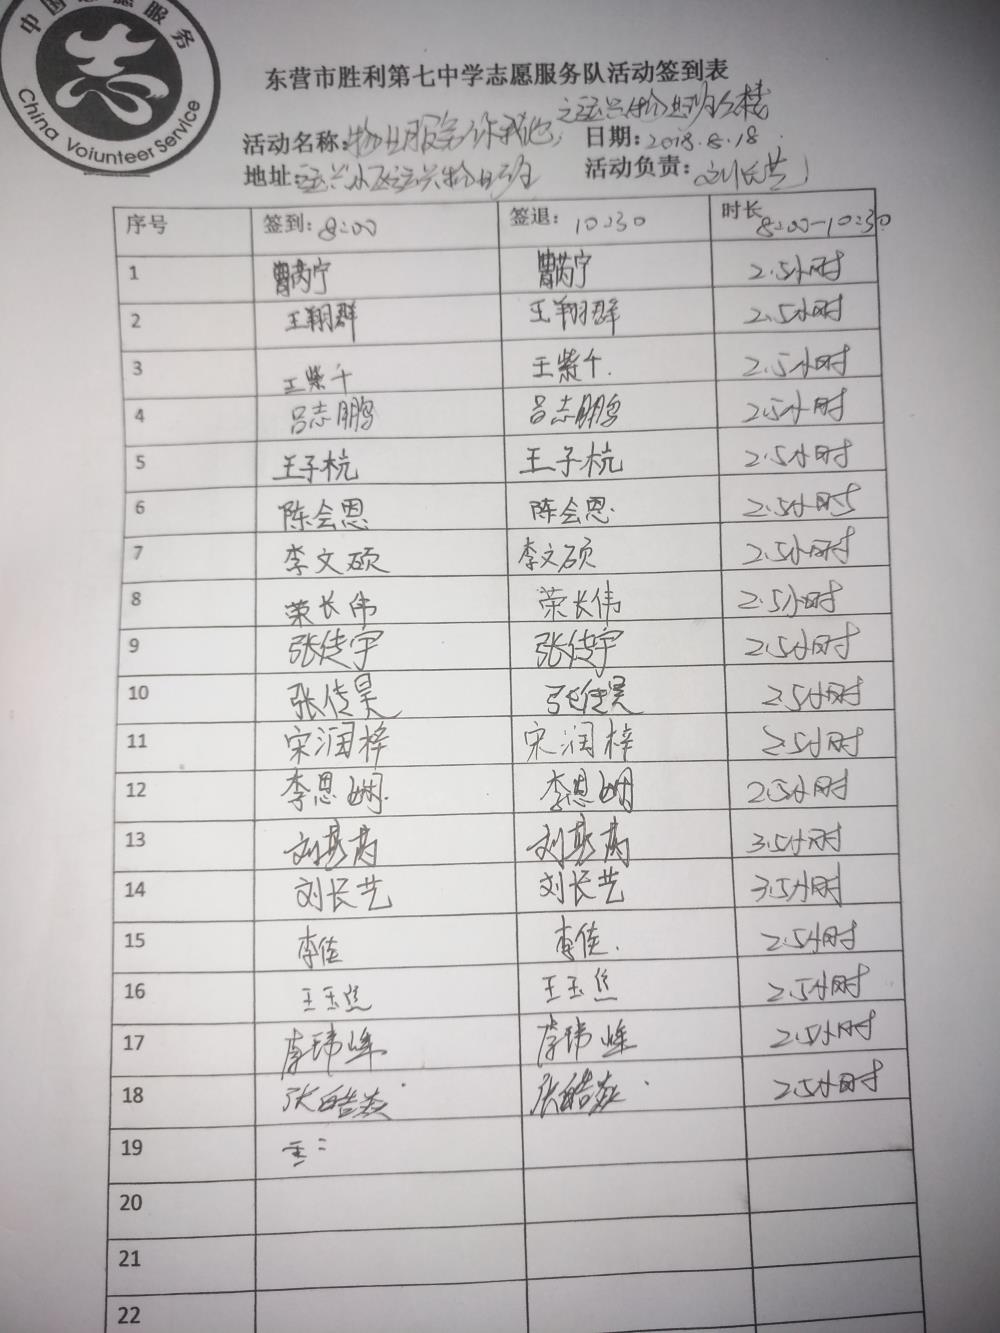 中国志愿服务
China Volunteer Service
东营市胜利第七中学志愿服务队活动签到表
之运兴物业班公楼
活动名称:物业服务你我他, 日期:2018.8.18.
地址:运兴小区运兴物业班 活动负责:刘长艺
序号 签到:8:00 签退:10:30 时长 8:00-10:30
1 曹芮宁 曹芮宁 2.5小时
2 王翔群 王翔群 2.5小时
3 王紫千 王紫千. 2.5小时
4 吕志鹏 吕志鹏 2.5小时
5 王子杭 王子杭 2.5小时
6 陈会恩 陈会恩. 2.5小时
7 李文硕 李文硕 2.5小时
8 荣长伟 荣长伟 2.5小时
9 张倢宇 张倢宇 2.5小时
10 张倢昊 张倢昊 2.5小时
11 宋润梓 宋润梓 2.5小时
12 李恩娴. 李恩娴 2.5小时
13 刘基芮 刘基芮 3.5小时
14 刘长艺 刘长艺 3.5小时
15 李佳 李佳. 2.5小时
16 王玉丝 王玉丝 2.5小时
17 李玮烨 李玮烨 2.5小时
18 张皓焱 张皓焱 2.5小时
19
20
21
22